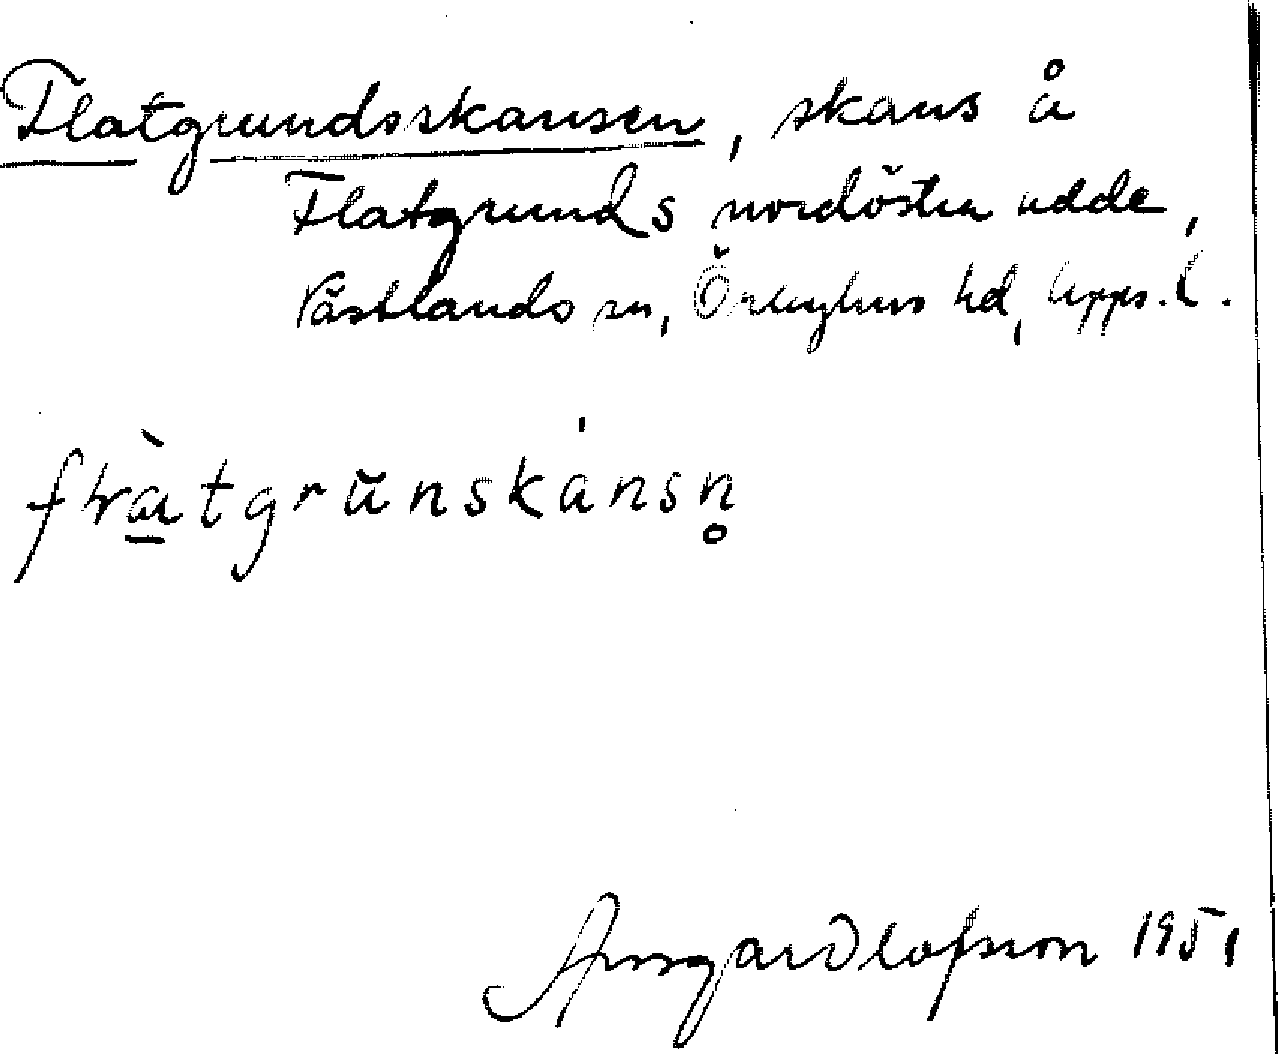 Flatgrundsskansen, skans å
Flatgrunds nordöstra udde,
Västlands sn, Örbyhus hd, Upps. l.
flatgrunskansn̥
Ansgar Olofsson 1951